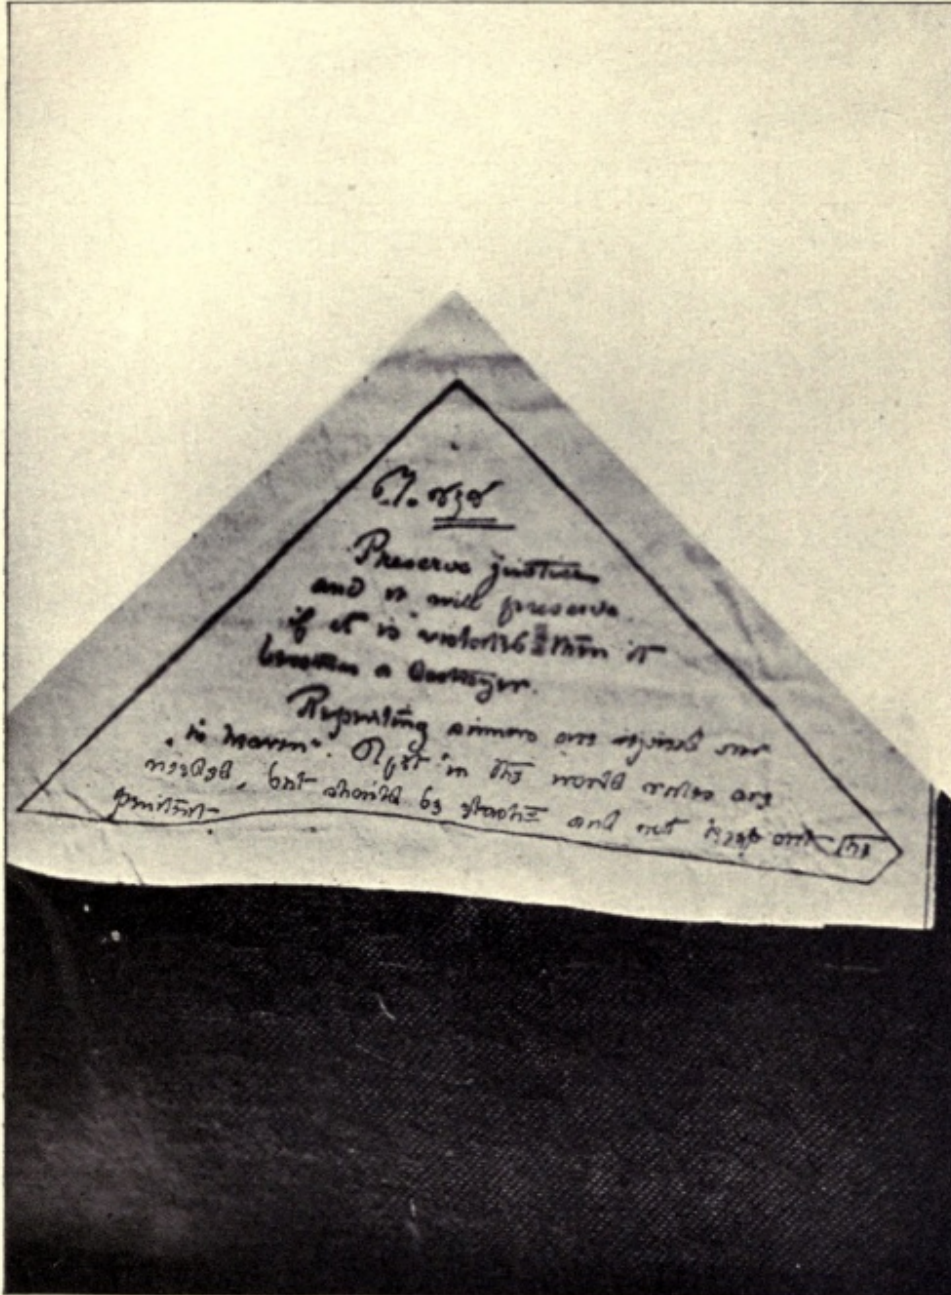 Preserve justice
and it will preserve
if it is violated then it
becomes a destroyer.
Repenting sinners are rejoiced over
"in heaven". in this world rules are
needed, but should be elastic and not keep out the
penitent